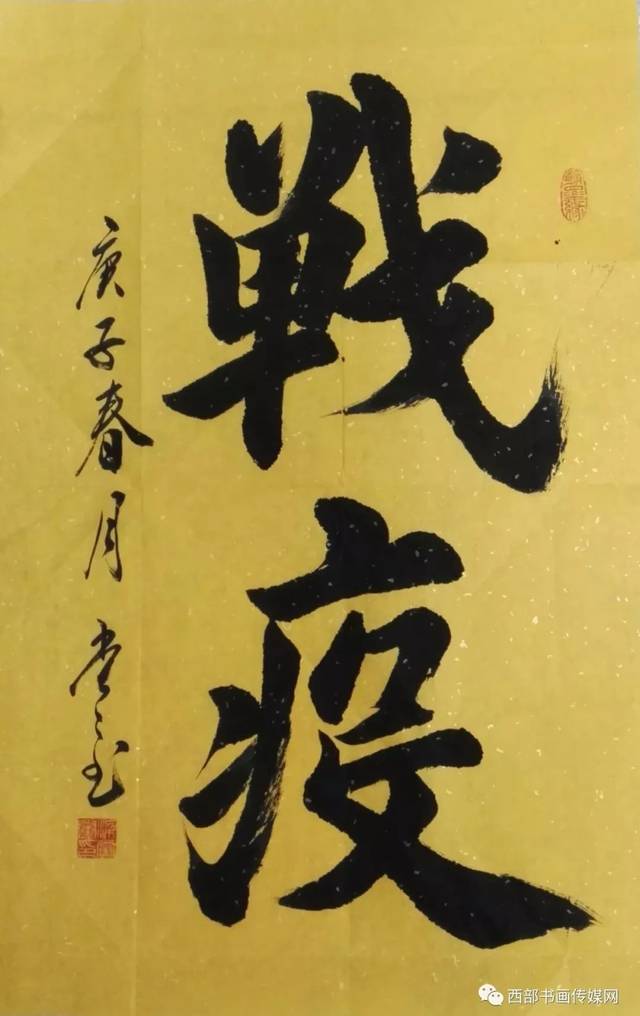 戦疫
庚子春月
西部书画传媒网